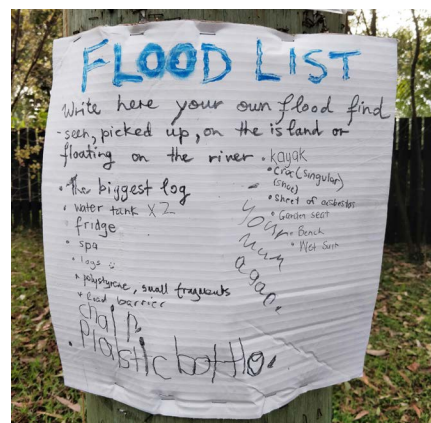 FLOOD LIST
Write here your own flood find
- seen, picked up, on the island or
floating on the river
• the biggest log
• water tank x2
• fridge
• spa
• logs
• polystyrene, small fragments
barrier
chair
• Plastic bottle
• kayak
• croc (singular)
(shoe)
• sheet of asbestos
• Garden seat
• Bench
• Wet Suit
your
mum